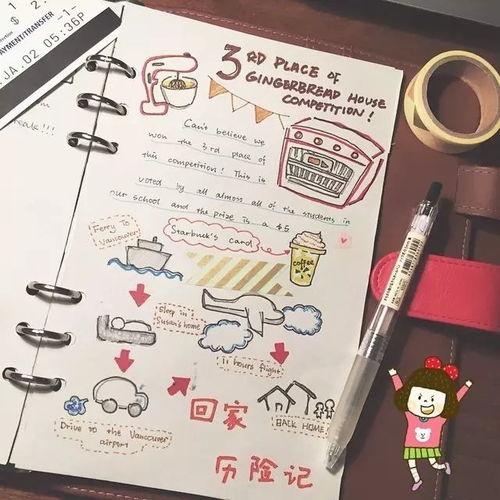 PAYMENT/TRANSFER
-1-
JA.02 05:36P
3RD PLACE of
GINGERBREAD HOUSE
COMPETITION!
Can't believe we
won the 3rd place of
this competition! This is
voted by all almost all of the students in
our school and the prize is a $5
Starbuck's card
coffee
Ferry to
Vancouver
Sleep in
Susan's home
11 hours flight
Drive to the Vancouver
airport!
BACK HOME
回家
历险记